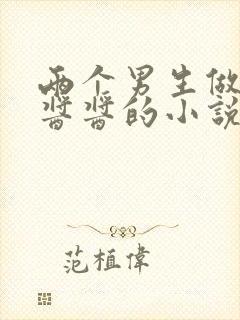 两个男生做
酱酱的小说
范植伟